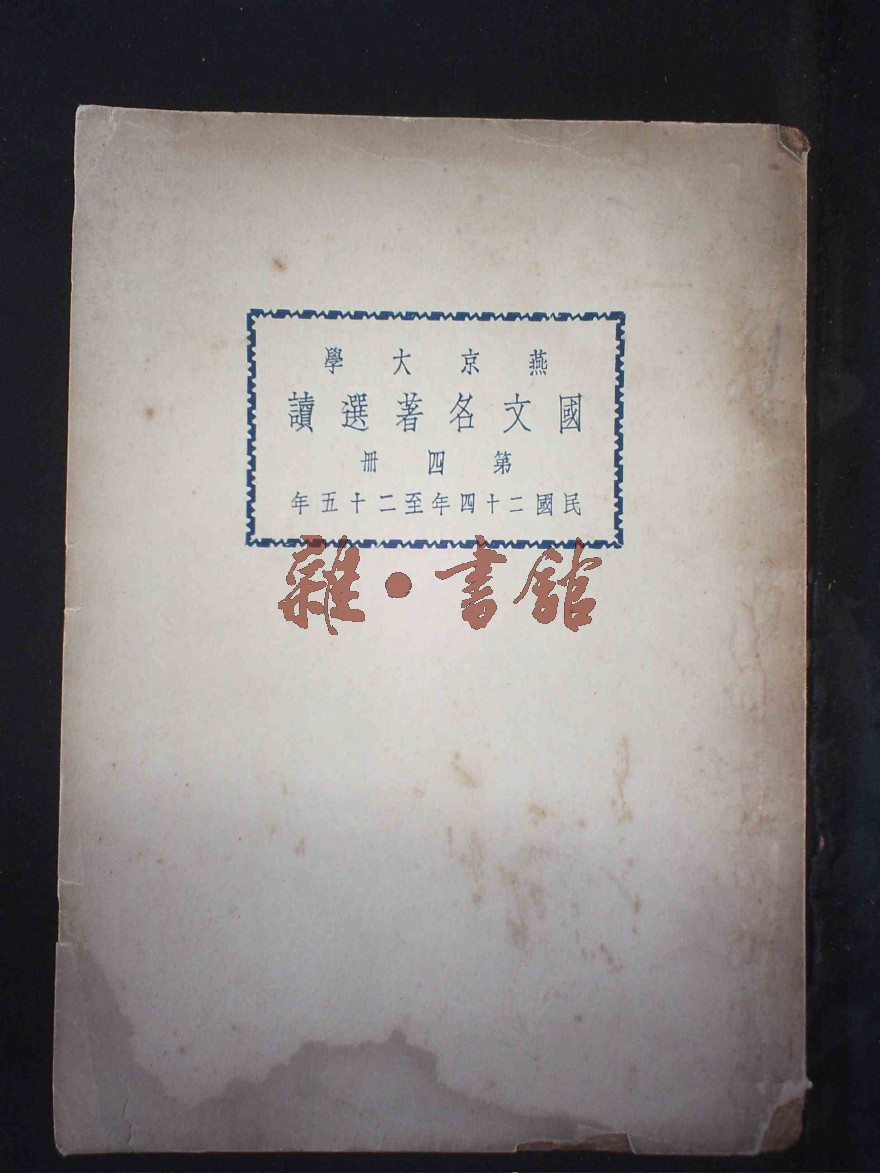 燕京大學
國文名著選讀
第四冊
民國二十四年至二十五年
雜·書館